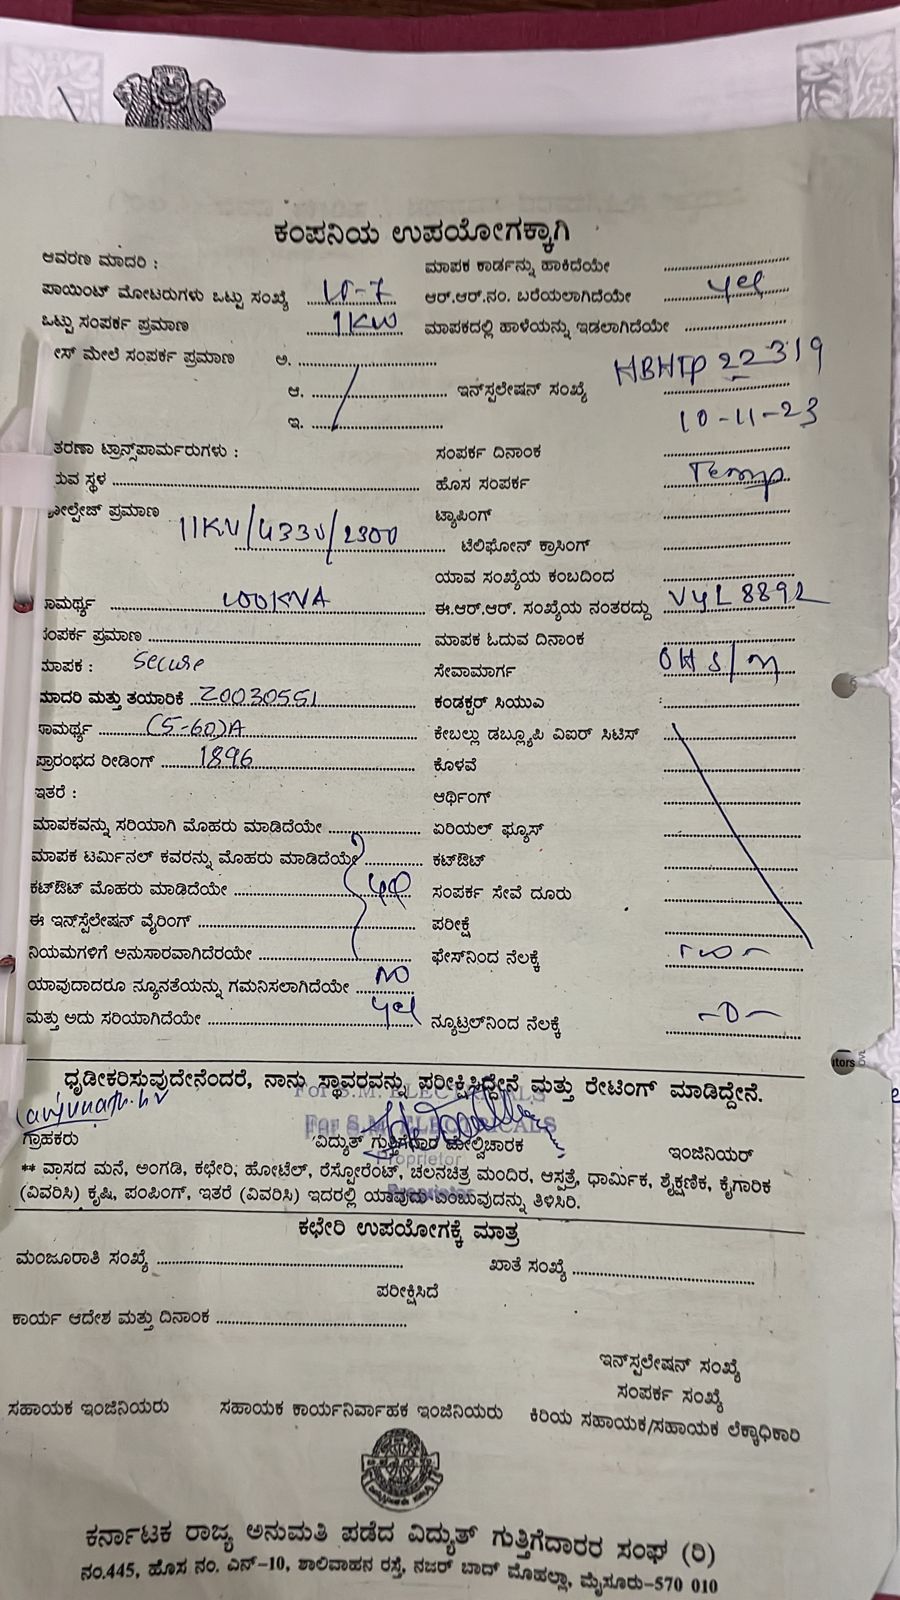 ಕಂಪನಿಯ ಉಪಯೋಗಕ್ಕಾಗಿ
ಆವರಣ ಮಾದರಿ : ಮಾಪಕ ಕಾರ್ಡನ್ನು ಹಾಕಿದೆಯೇ
ಪಾಯಿಂಟ್ ಮೋಟರುಗಳು ಒಟ್ಟು ಸಂಖ್ಯೆ ಆರ್.ಆರ್.ನಂ. ಬರೆಯಲಾಗಿದೆಯೇ yes
ಒಟ್ಟು ಸಂಪರ್ಕ ಪ್ರಮಾಣ 1KW ಮಾಪಕದಲ್ಲಿ ಹಾಳೆಯನ್ನು ಇಡಲಾಗಿದೆಯೇ
ಸ್ ಮೇಲೆ ಸಂಪರ್ಕ ಪ್ರಮಾಣ ಅ.
ಆ. ಇನ್‌ಸ್ಟಲೇಷನ್ ಸಂಖ್ಯೆ HBHTP 22319
ಇ. 10-11-23
ತರಣಾ ಟ್ರಾನ್ಸ್‌ಪಾರ್ಮರುಗಳು : ಸಂಪರ್ಕ ದಿನಾಂಕ
ರುವ ಸ್ಥಳ ಹೊಸ ಸಂಪರ್ಕ Temp
ಲ್ಟೇಜ್ ಪ್ರಮಾಣ 11KV/433V/2300 ಟ್ಯಾಪಿಂಗ್
ಟೆಲಿಫೋನ್ ಕ್ರಾಸಿಂಗ್
ಯಾವ ಸಂಖ್ಯೆಯ ಕಂಬದಿಂದ
ಸಾಮರ್ಥ್ಯ 100KVA ಈ.ಆರ್.ಆರ್. ಸಂಖ್ಯೆಯ ನಂತರದ್ದು VYL 8892
ಸಂಪರ್ಕ ಪ್ರಮಾಣ ಮಾಪಕ ಓದುವ ದಿನಾಂಕ
ಮಾಪಕ : Secure ಸೇವಾಮಾರ್ಗ OH S/m
ಮಾದರಿ ಮತ್ತು ತಯಾರಿಕೆ Z0030551 ಕಂಡಕ್ಟರ್ ಸಿಯುಎ
ಸಾಮರ್ಥ್ಯ (5-60)A ಕೇಬಲ್ಲು ಡಬ್ಲ್ಯೂಪಿ ವಿಐರ್ ಸಿಟಿಸ್
ಪ್ರಾರಂಭದ ರೀಡಿಂಗ್ 1896 ಕೊಳವೆ
ಇತರೆ : ಆರ್ಥಿಂಗ್
ಮಾಪಕವನ್ನು ಸರಿಯಾಗಿ ಮೊಹರು ಮಾಡಿದೆಯೇ ಏರಿಯಲ್ ಫ್ಯೂಸ್
ಮಾಪಕ ಟರ್ಮಿನಲ್ ಕವರನ್ನು ಮೊಹರು ಮಾಡಿದೆಯೇ ಕಟ್‌ಔಟ್
ಕಟ್‌ಔಟ್ ಮೊಹರು ಮಾಡಿದೆಯೇ yes ಸಂಪರ್ಕ ಸೇವೆ ದೂರು
ಈ ಇನ್‌ಸ್ಟೆಲೇಷನ್ ವೈರಿಂಗ್ ಪರೀಕ್ಷೆ
ನಿಯಮಗಳಿಗೆ ಅನುಸಾರವಾಗಿದೆರಯೇ ಫೇಸ್‌ನಿಂದ ನೆಲಕ್ಕೆ
ಯಾವುದಾದರೂ ನ್ಯೂನತೆಯನ್ನು ಗಮನಿಸಲಾಗಿದೆಯೇ NO
ಮತ್ತು ಅದು ಸರಿಯಾಗಿದೆಯೇ yes ನ್ಯೂಟ್ರಲ್‌ನಿಂದ ನೆಲಕ್ಕೆ
ಧೃಡೀಕರಿಸುವುದೇನೆಂದರೆ, ನಾನು ಸ್ಥಾವರವನ್ನು ಪರೀಕ್ಷಿಸಿದ್ದೇನೆ ಮತ್ತು ರೇಟಿಂಗ್ ಮಾಡಿದ್ದೇನೆ.
For S.M. ELECTRICALS
For S.M. ELECTRICALS
ಗ್ರಾಹಕರು ವಿದ್ಯುತ್ ಗುತ್ತಿಗೆದಾರ ಮೇಲ್ವಿಚಾರಕ ಇಂಜಿನಿಯರ್
Proprietor
** ವಾಸದ ಮನೆ, ಅಂಗಡಿ, ಕಛೇರಿ, ಹೋಟೆಲ್, ರೆಸ್ಟೋರೆಂಟ್, ಚಲನಚಿತ್ರ ಮಂದಿರ, ಆಸ್ಪತ್ರೆ, ಧಾರ್ಮಿಕ, ಶೈಕ್ಷಣಿಕ, ಕೈಗಾರಿಕ
(ವಿವರಿಸಿ) ಕೃಷಿ, ಪಂಪಿಂಗ್, ಇತರೆ (ವಿವರಿಸಿ) ಇದರಲ್ಲಿ ಯಾವುದು ಎಂಬುವುದನ್ನು ತಿಳಿಸಿರಿ.
Proprietor
ಕಛೇರಿ ಉಪಯೋಗಕ್ಕೆ ಮಾತ್ರ
ಮಂಜೂರಾತಿ ಸಂಖ್ಯೆ ಖಾತೆ ಸಂಖ್ಯೆ
ಪರೀಕ್ಷಿಸಿದೆ
ಕಾರ್ಯ ಆದೇಶ ಮತ್ತು ದಿನಾಂಕ
ಇನ್‌ಸ್ಟಲೇಷನ್ ಸಂಖ್ಯೆ
ಸಂಪರ್ಕ ಸಂಖ್ಯೆ
ಸಹಾಯಕ ಇಂಜಿನಿಯರು ಸಹಾಯಕ ಕಾರ್ಯನಿರ್ವಾಹಕ ಇಂಜಿನಿಯರು ಕಿರಿಯ ಸಹಾಯಕ/ಸಹಾಯಕ ಲೆಕ್ಕಾಧಿಕಾರಿ
ಕರ್ನಾಟಕ ರಾಜ್ಯ ಅನುಮತಿ ಪಡೆದ ವಿದ್ಯುತ್ ಗುತ್ತಿಗೆದಾರರ ಸಂಘ (ರಿ)
ನಂ.445, ಹೊಸ ನಂ. ಎನ್-10, ಶಾಲಿವಾಹನ ರಸ್ತೆ, ನಜರ್ ಬಾದ್ ಮೊಹಲ್ಲಾ, ಮೈಸೂರು-570 010